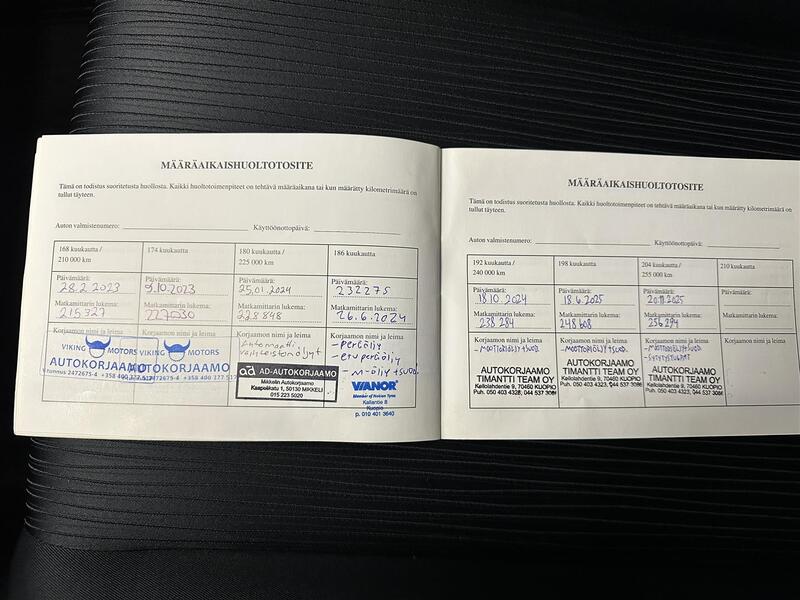 MÄÄRÄAIKAISHUOLTOTOSITE
Tämä on todistus suoritetusta huollosta. Kaikki huoltotoimenpiteet on tehtävä määräaikana tai kun määrätty kilometrimäärä on
tullut täyteen.
Auton valmistenumero: Käyttöönottopäivä:
168 kuukautta / 174 kuukautta 180 kuukautta / 186 kuukautta
210 000 km 225 000 km
Päivämäärä: Päivämäärä: Päivämäärä: Päivämäärä:
28.2.2023 9.10.2023 25.01.2024 232275
Matkamittarin lukema: Matkamittarin lukema: Matkamittarin lukema: Matkamittarin lukema:
215327 227030 228848 26.6.2024
Korjaamon nimi ja leima Korjaamon nimi ja leima Korjaamon nimi ja leima Korjaamon nimi ja leima
VIKING MOTORS
AUTOKORJAAMO
Y-tunnus 2472675-4 +358 400 377 517
VIKING MOTORS
AUTOKORJAAMO
2472675-4 +358 400 377 517
Automaatti
vaihteistoöljyt
AD-AUTOKORJAAMO
Mikkelin Autokorjaamo
Kaapelikatu 1, 50130 MIKKELI
015 223 5020
- peröljy
- etuperöljy
- m-öljy+suod.
VIANOR
Member of Nokian Tyres
Kallantie 8
Kuopio
p. 010 401 3640
MÄÄRÄAIKAISHUOLTOTOSITE
Tämä on todistus suoritetusta huollosta. Kaikki huoltotoimenpiteet on tehtävä määräaikana tai kun määrätty kilometrimäärä on
tullut täyteen.
Auton valmistenumero: Käyttöönottopäivä:
192 kuukautta / 198 kuukautta 204 kuukautta / 210 kuukautta
240 000 km 255 000 km
Päivämäärä: Päivämäärä: Päivämäärä: Päivämäärä:
18.10.2024 18.6.2025 20.11.2025
Matkamittarin lukema: Matkamittarin lukema: Matkamittarin lukema: Matkamittarin lukema:
238 284 248 608 256 294
Korjaamon nimi ja leima Korjaamon nimi ja leima Korjaamon nimi ja leima Korjaamon nimi ja leima
-MOOTTORIÖLJYT+SUOD.
AUTOKORJAAMO
TIMANTTI TEAM OY
Kellolahdentie 9, 70460 KUOPIO
Puh. 050 403 4323, 044 537
-MOOTTORIÖLJYT+SUOD.
AUTOKORJAAMO
TIMANTTI TEAM OY
Kellolahdentie 9, 70460 KUOPIO
Puh. 050 403 4323, 044 537
-MOOTTORIÖLJYT+SUOD
-SYTYTYSTULPAT
AUTOKORJAAMO
TIMANTTI TEAM OY
Kellolahdentie 9, 70460 KUOPIO
Puh. 050 403 4323, 044 537